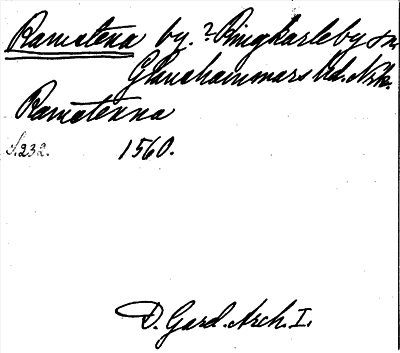 Ramstena by. ? Ringkarleby sn
Glanshammars hd. Nrk.
Ramstenna
S. 232. 1560.
D. Gard. Arch. I.